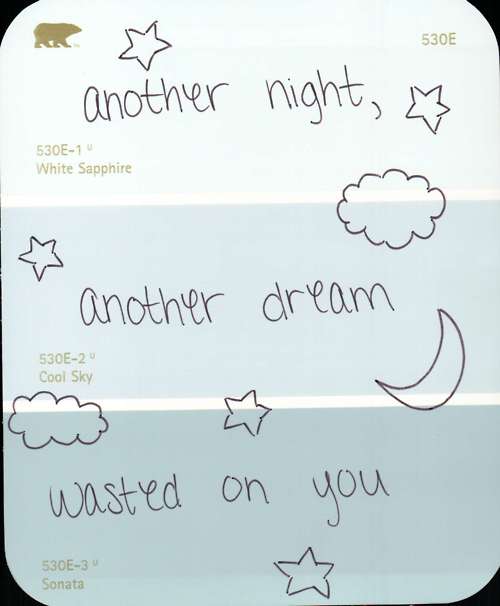 530E
another night,
530E-1 U
White Sapphire
another dream
530E-2 U
Cool Sky
wasted on you
530E-3 U
Sonata